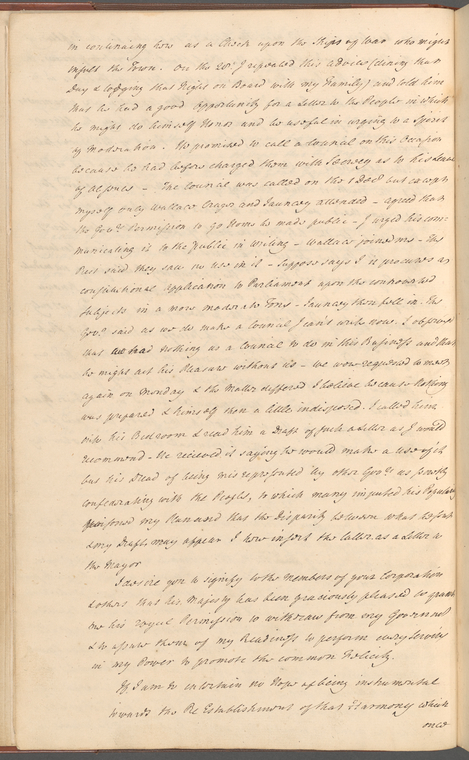 in continuing here as a Check upon the Ships of War who might
insult the Town. On the 28th I repeated this advice (dining that
Day & lodging that Night on Board with my Family) and told him
that he had a good Opportunity for a Letter to the People in which
he might do himself Honor and be useful in urging to a Spirit
of Moderation. He promised to call a Council on this Occasion
because he had before charged them with Secrecy as to his
of Absence — The Council was called on the 1 Decr but except
myself only Wallace Cruger and Jauncey attended — agreed that
the Govrs Permission to go Home be made public — I urged his com-
municating it to the public in Writing — Wallace joined me — the
Rest said they saw no use in it — Suppose says I it procures a
constitutional application to Parliament upon the
Subjects in a more moderate Tone — Jauncey then fell in. The
Govr said as we do make a Council I can't write now. I observed
that we had nothing as a Council to do in this Business and that
he might act his Pleasure without us — we were requested to meet
again on Monday & the Matter differed I believe because Nothing
was prepared & himself then a little indisposed. I called him
into his Bedroom & read him a Draft of such a Letter as I would
recommend. He received it saying he would make a use of it
but his Dread of being misrepresented by other Govrs as secretly
confederating with the People, to which many imputed his Popularity
my Planned that the Disparity between what he sent
& my Draft may appear I here insert the Letter as a Letter to
the Mayor
I desire you to signify to the Members of your Corporation
& others that his Majesty has been graciously pleased to grant
me his royal Permission to withdraw from my Governmt
& to assure them of my Readiness to perform every Service
in my Power to promote the common Felicity.
If I am to entertain no Hope of being instrumental
towards the Re Establishment of that Harmony which
once